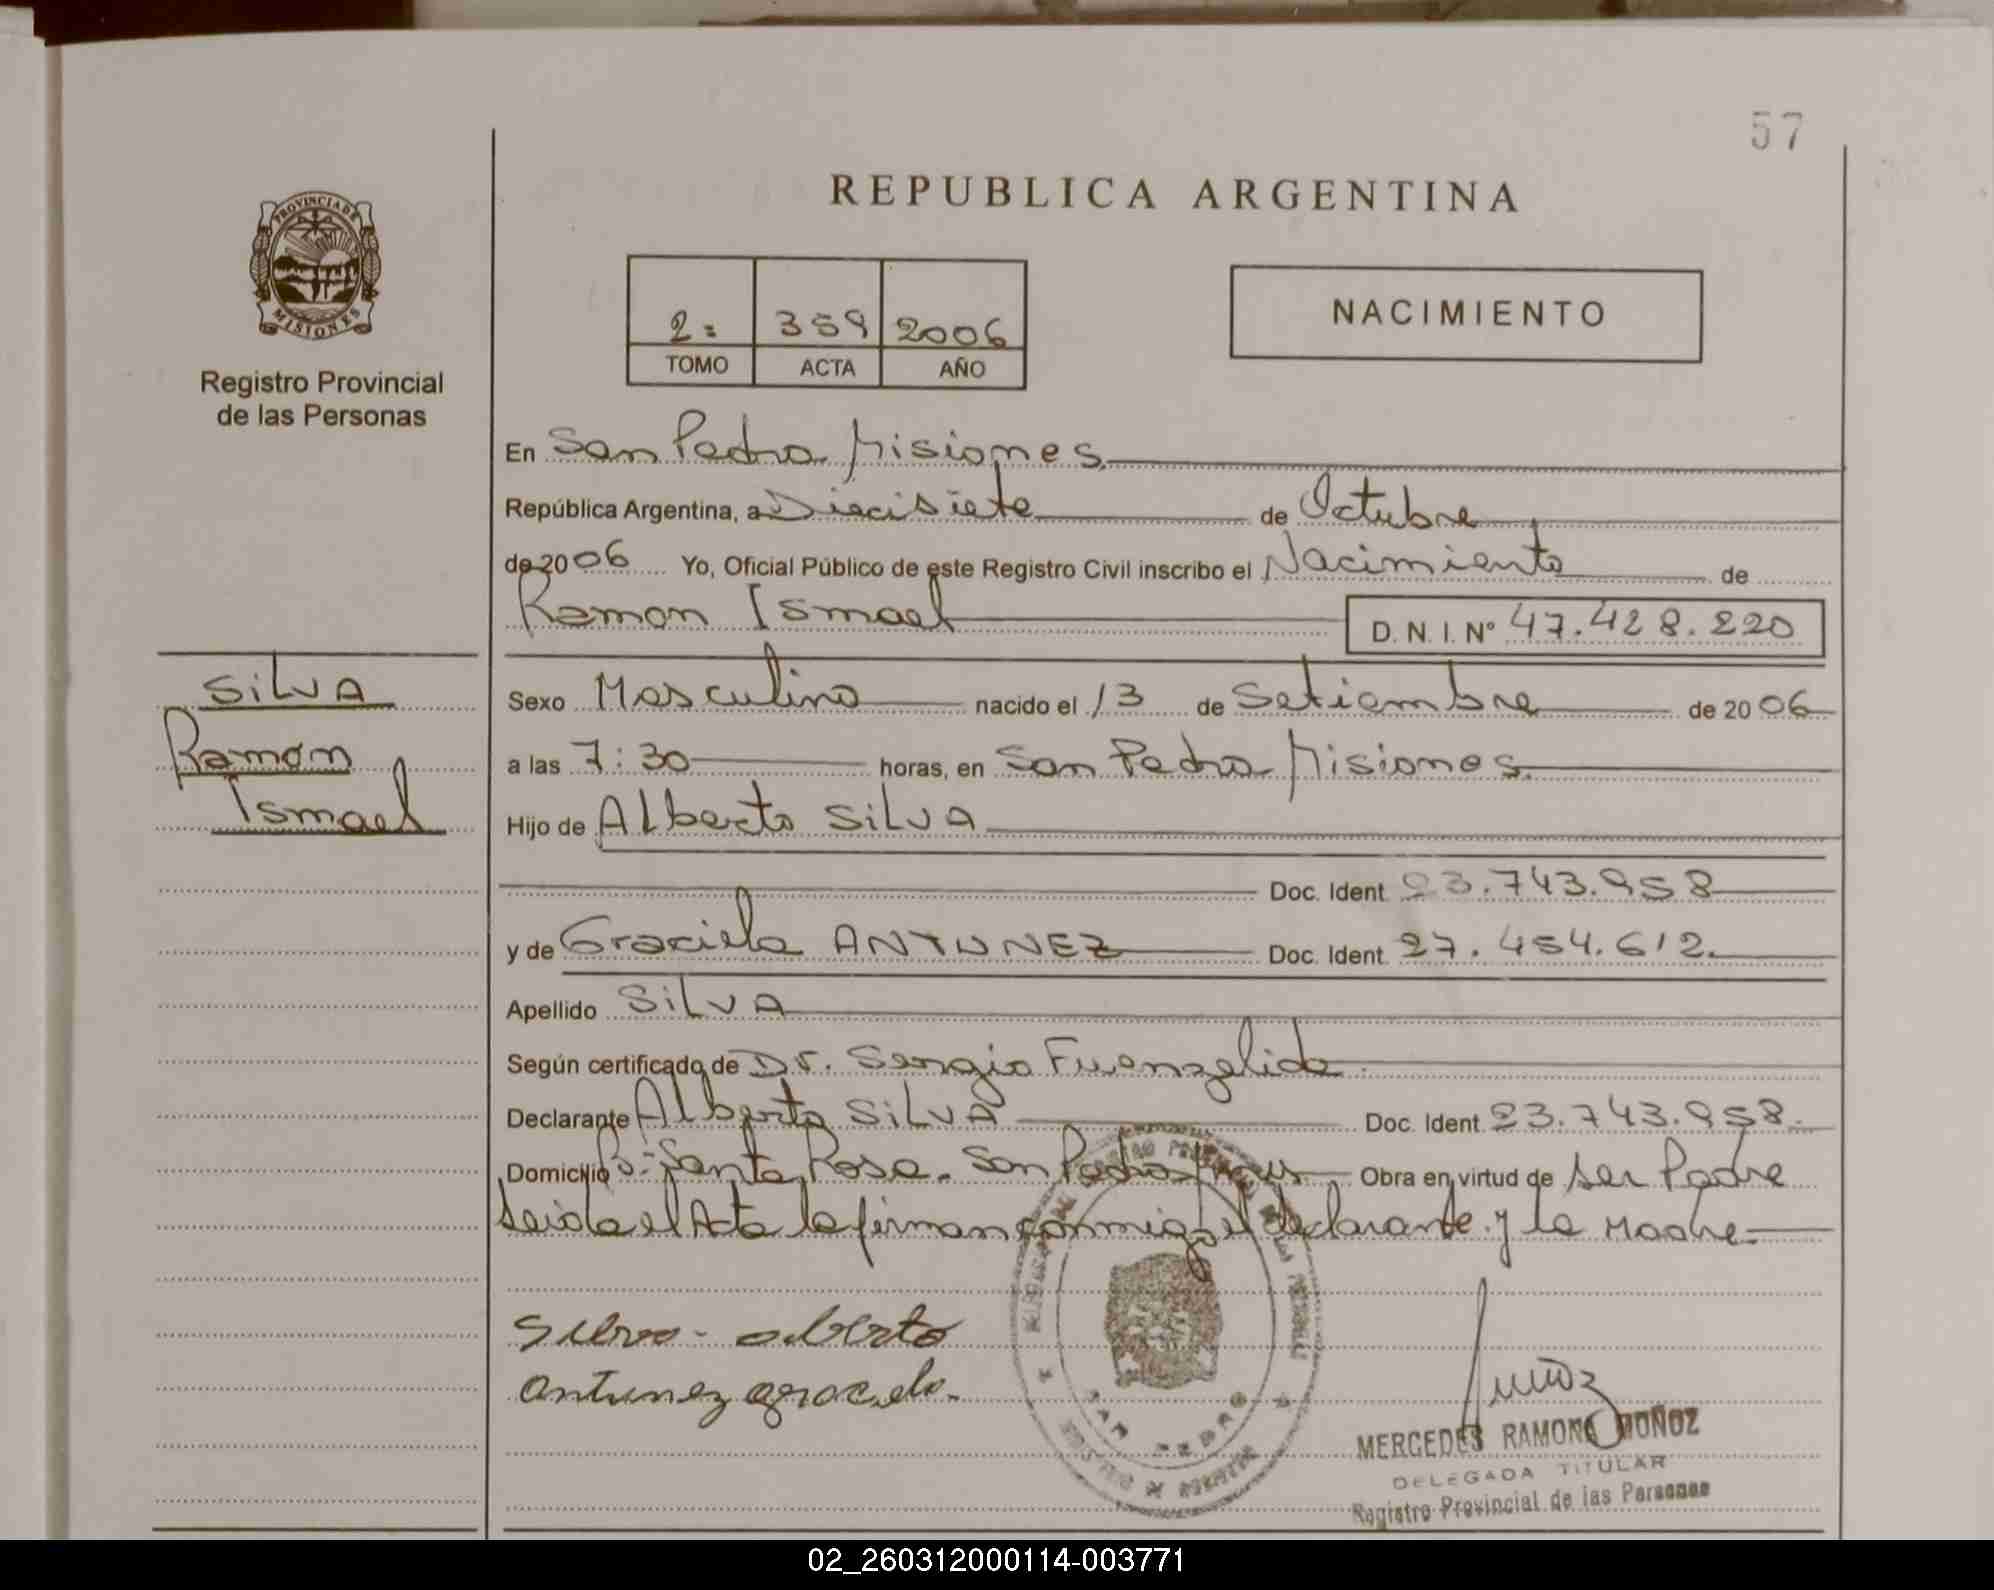 57
REPUBLICA ARGENTINA
PROVINCIA DE
MISIONES
Registro Provincial
de las Personas
2= 359 2006
TOMO ACTA AÑO
NACIMIENTO
En San Pedro Misiones.
República Argentina, a Diecisiete de Octubre
de 2006 Yo, Oficial Público de este Registro Civil inscribo el Nacimiento de
Ramon Ismael D. N. I. Nº 47.428.220
SILVA
Ramón
Ismael
Sexo Masculino nacido el 13 de Setiembre de 2006
a las 7:30 horas, en San Pedro Misiones.
Hijo de Alberto SILVA
Doc. Ident. 23.743.958
y de Graciela ANTUNEZ Doc. Ident. 27.454.612.
Apellido SILVA
Según certificado de Dr. Sergio Fuenzalida.
Declarante Alberto SILVA Doc. Ident. 23.743.958.
Domicilio Bº Santa Rosa. San Pedro Mnes Obra en virtud de ser Padre
Leida el Acta la firman conmigo el declarante y la Madre
Silva - alberto
Antunez
SAN PEDRO
MERCEDES RAMONA MUÑOZ
DELEGADA TITULAR
Registro Provincial de las Personas
02_260312000114-003771